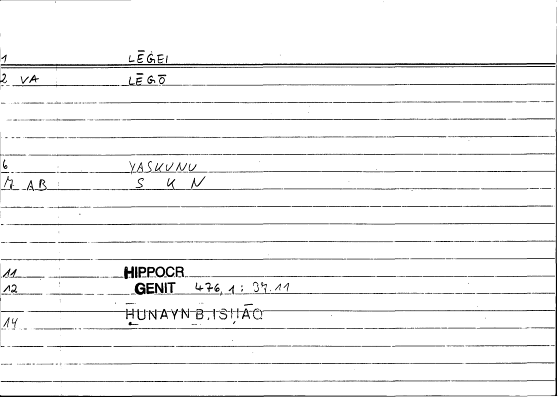 1 LĒGEI
2 VA LĒGŌ
6 YASKUNU
7 AB S K N
11 HIPPOCR
12 GENIT 476,1 : 37.11
14 ḤUNAYN B. ISḤĀQ